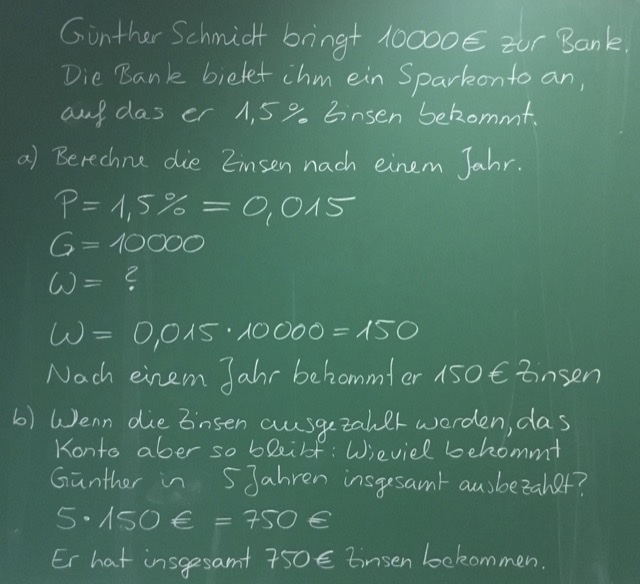 Günther Schmidt bringt 10000€ zur Bank.
Die Bank bietet ihm ein Sparkonto an,
auf das er 1,5% Zinsen bekommt.
a) Berechne die Zinsen nach einem Jahr.
P = 1,5% = 0,015
G = 10000
W = ?
W = 0,015 · 10000 = 150
Nach einem Jahr bekommt er 150€ Zinsen
b) Wenn die Zinsen ausgezahlt werden, das
Konto aber so bleibt: Wieviel bekommt
Günther in 5 Jahren insgesamt ausbezahlt?
5 · 150 € = 750 €
Er hat insgesamt 750€ Zinsen bekommen.